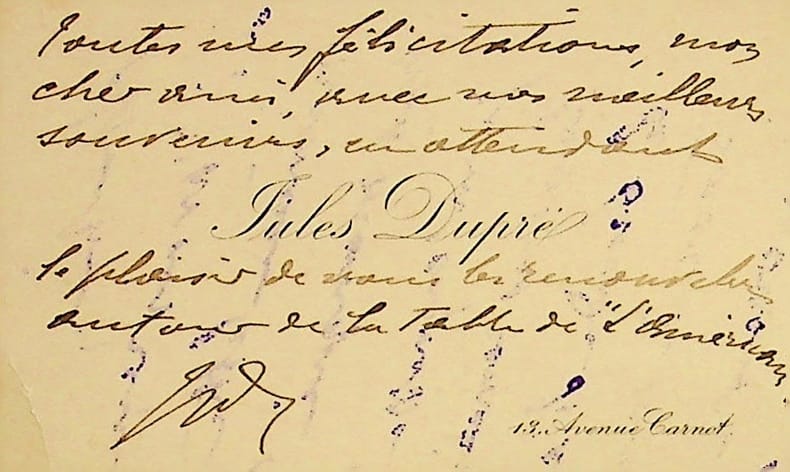 Toutes mes félicitations, mon
cher ami, avec nos meilleurs
souvenirs, en attendant
Jules Dupré
le plaisir de vous les renouveler
autour de la Table de "L'Américain
13, Avenue Carnot.